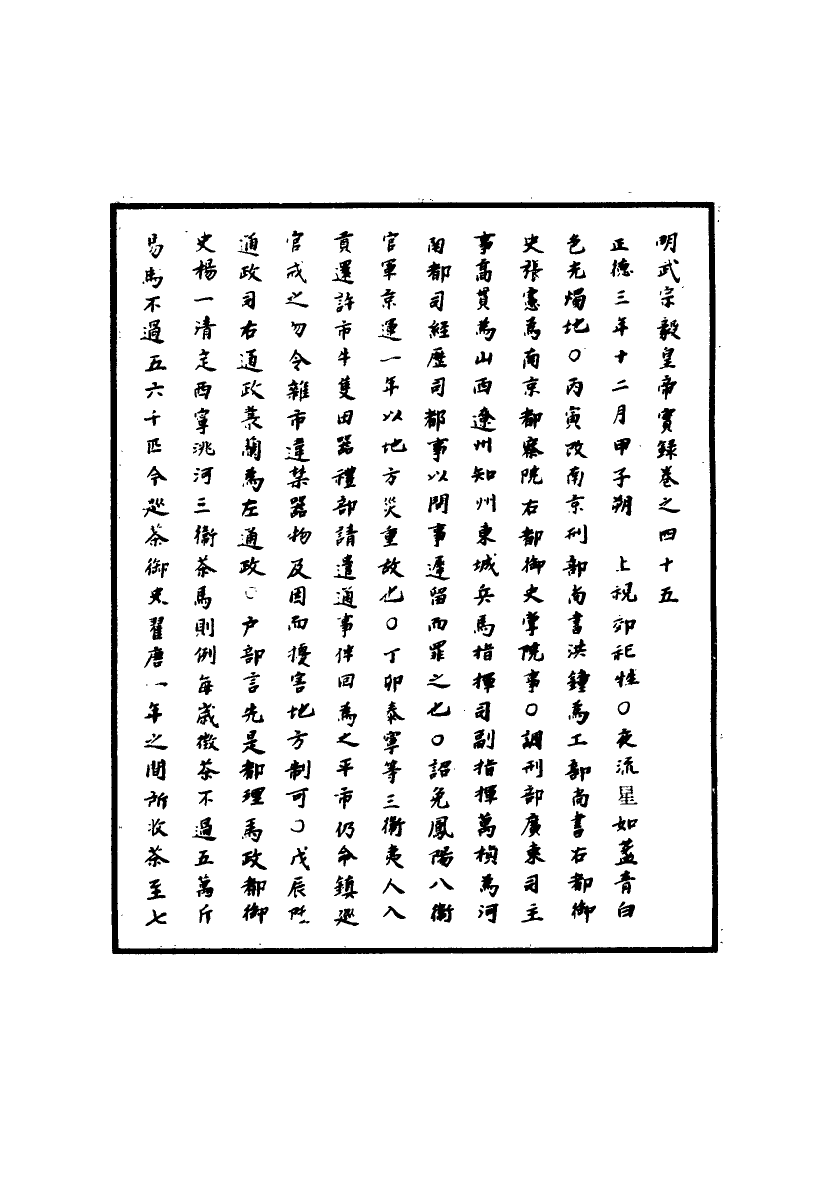 明武宗毅皇帝實錄卷之四十五
正德三年十二月甲子朔　上視郊祀牲○夜流星如盞青白
色光燭地○丙寅改南京刑部尚書洪鐘為工部尚書右都御
史張憲為南京都察院右都御史掌院事○調刑部廣東司主
事高貫為山西遼州知州東城兵馬指揮司副指揮萬楨為河
南都司經歷司都事以問事遲留而罪之也○詔免鳳陽八衛
官軍京運一年以地方災重故也○丁卯泰寧等三衛夷人入
貢還許市牛隻田器禮部請遣通事伴回為之平市仍令鎮巡
官戒之勿令雜市違禁器物及因而擾害地方制可○戊辰陞
通政司右通政叢蘭為左通政○戶部言先是都理馬政都御
史楊一清定西寧洮河三衛茶馬則例每歲徵茶不過五萬斤
易馬不過五六千匹今巡茶御史翟唐一年之間所收茶至七